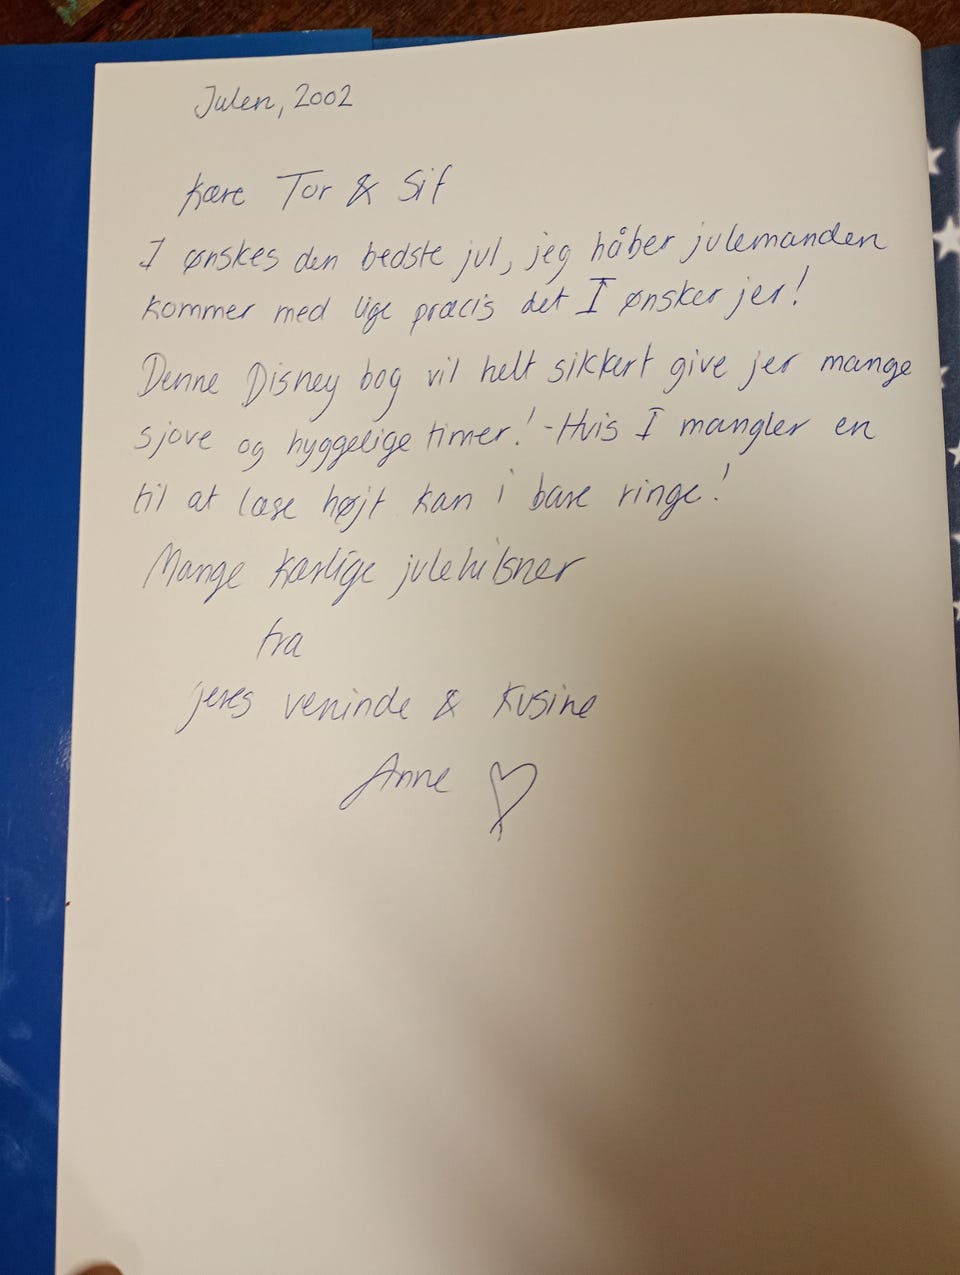 Julen, 2002
Kære Tor & Sif
I ønskes den bedste jul, jeg håber julemanden
kommer med lige præcis det I ønsker jer!
Denne Disney bog vil helt sikkert give jer mange
sjove og hyggelige timer! - Hvis I mangler en
til at læse højt kan i bare ringe!
Mange kærlige julehilsner
fra
jeres veninde & kusine
Anne ♡